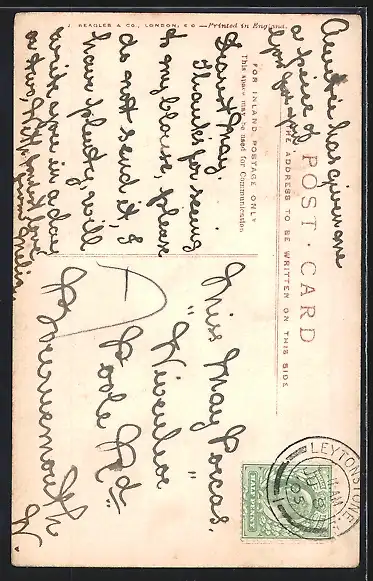 J. BEAGLES & CO., LONDON, E.C. — Printed in England.
POST · CARD
THE ADDRESS TO BE WRITTEN ON THIS SIDE
FOR INLAND POSTAGE ONLY
This space may be used for Communication
Auntie has given me
a piece of
Dearest May,
Thanks for seeing
to my blouse, please
do not send it, I
have plenty, will
write you in a day
or two, with fond love
from
Miss May Porcas,
"
Poole Rd
Bournemouth
W.
LEYTONSTONE